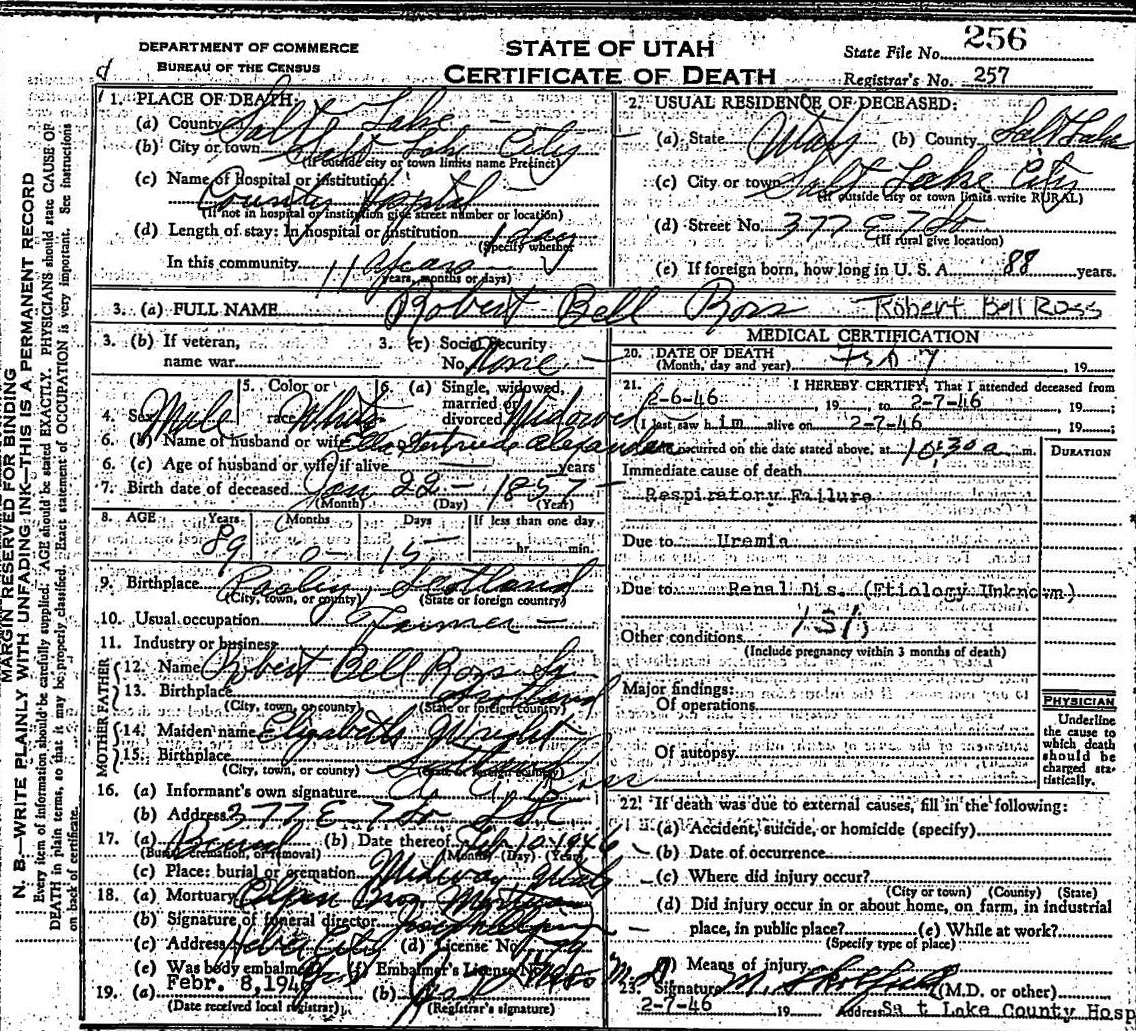 DEPARTMENT OF COMMERCE
BUREAU OF THE CENSUS
STATE OF UTAH
CERTIFICATE OF DEATH
State File No. 256
Registrar's No. 257
MARGIN RESERVED FOR BINDING
N. B.—WRITE PLAINLY WITH UNFADING INK—THIS IS A PERMANENT RECORD
Every item of information should be carefully supplied. AGE should be stated EXACTLY. PHYSICIANS should state CAUSE OF
DEATH in plain terms, so that it may be properly classified. Exact statement of OCCUPATION is very important. See instructions
on back of certificate.
1. PLACE OF DEATH:
(a) County Salt Lake
(b) City or town Salt Lake City
(If outside city or town limits name Precinct)
(c) Name of Hospital or institution:
County Hospital
(If not in hospital or institution give street number or location)
(d) Length of stay: In hospital or institution 1 day
(Specify whether
In this community 11 years
years, months or days)
2. USUAL RESIDENCE OF DECEASED:
(a) State Utah (b) County Salt Lake
(c) City or town Salt Lake City
(If outside city or town limits write RURAL)
(d) Street No. 377 E 7 So
(If rural give location)
(e) If foreign born, how long in U. S. A. 88 years.
3. (a) FULL NAME Robert Bell Ross Robert Bell Ross
3. (b) If veteran,
name war
3. (c) Social Security
No. None
4. Sex Male
5. Color or
race White
6. (a) Single, widowed,
married or
divorced Widowed
6. (b) Name of husband or wife Gertrude Alexander
6. (c) Age of husband or wife if alive years
7. Birth date of deceased Jan 22 - 1857
(Month) (Day) (Year)
8. AGE Years Months Days If less than one day
89 0 15 hr. min.
9. Birthplace Scotland
(City, town, or county) (State or foreign country)
10. Usual occupation Farmer
11. Industry or business
FATHER
12. Name Robert Bell Ross
13. Birthplace Scotland
(City, town, or county) (State or foreign country)
MOTHER
14. Maiden name Elizabeth Wright
15. Birthplace Scotland
(City, town, or county) (State or foreign country)
16. (a) Informant's own signature
(b) Address 377 E 7 So SLC
17. (a) Burial (b) Date thereof Feb 10 1946
(Burial, cremation, or removal) (Month) (Day) (Year)
(c) Place: burial or cremation Midway Utah
18. (a) Mortuary Olpin Bros Mortuary
(b) Signature of funeral director
(c) Address Heber City (d) License No.
(e) Was body embalmed yes (f) Embalmer's License No.
19. (a) Febr. 8, 1946 (b)
(Date received local registrar) (Registrar's signature)
MEDICAL CERTIFICATION
20. DATE OF DEATH Feb 7
(Month, day and year) , 19
21. I HEREBY CERTIFY, That I attended deceased from
2-6-46 , 19 to 2-7-46 , 19 ;
(I last saw him alive on 2-7-46 , 19 ;
occurred on the date stated above, at 10:30 a m.
DURATION
Immediate cause of death
Respiratory Failure
Due to Uremia
Due to Renal Dis. (Etiology Unknown)
131
Other conditions
(Include pregnancy within 3 months of death)
Major findings:
Of operations
Of autopsy
PHYSICIAN
Underline
the cause to
which death
should be
charged sta-
tistically.
22. If death was due to external causes, fill in the following:
(a) Accident, suicide, or homicide (specify)
(b) Date of occurrence
(c) Where did injury occur?
(City or town) (County) (State)
(d) Did injury occur in or about home, on farm, in industrial
place, in public place? (e) While at work?
(Specify type of place)
(f) Means of injury
23. Signature (M.D. or other)
2-7-46 19 Address Sa t Lake County Hosp